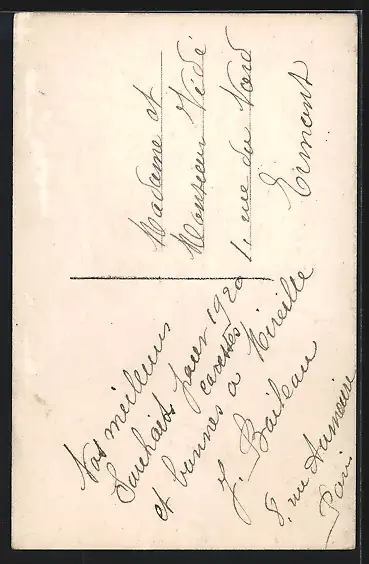 Nos meilleurs
Souhaits pour 1920
et bonnes caresses
a Mireille
J. Boileau
8, rue Aumaire
Paris
Madame et
Monsieur Védé
1, rue du Nord
Ermont